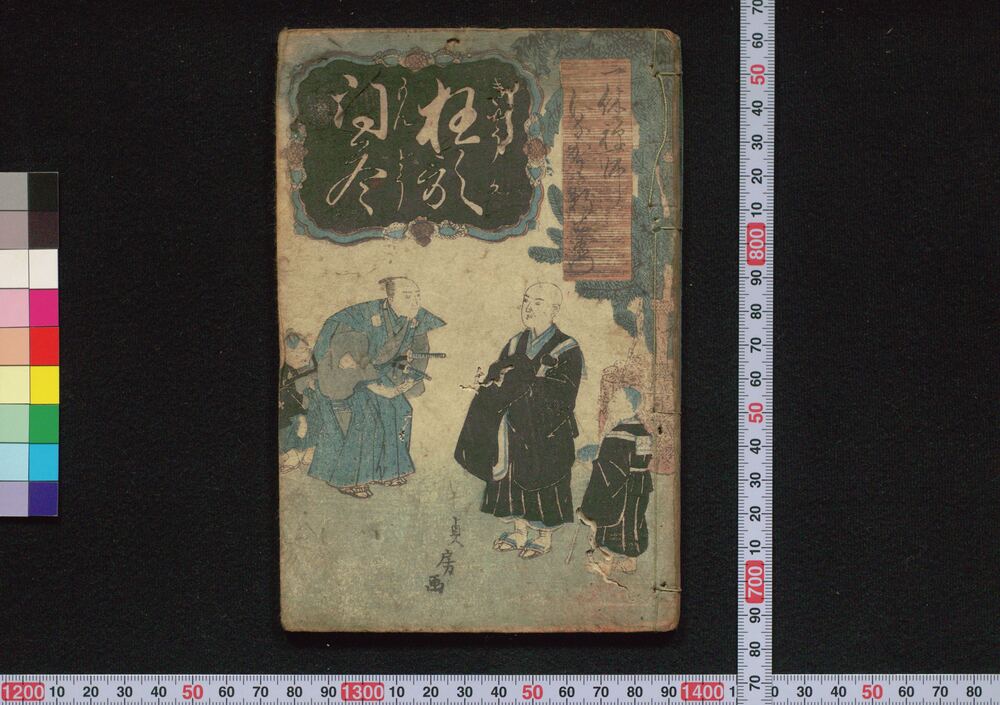 一休禅師
蜷川新右衛門
狂歌
きやうか
問答
もんどう
貞房画
70
60
50
40
30
20
10
800
90
80
70
60
50
40
30
20
10
700
90
80
70
1200 10 20 30 40 50 60 70 80 90 1300 10 20 30 40 50 60 70 80 90 1400 10 20 30 40 50 60 70 80